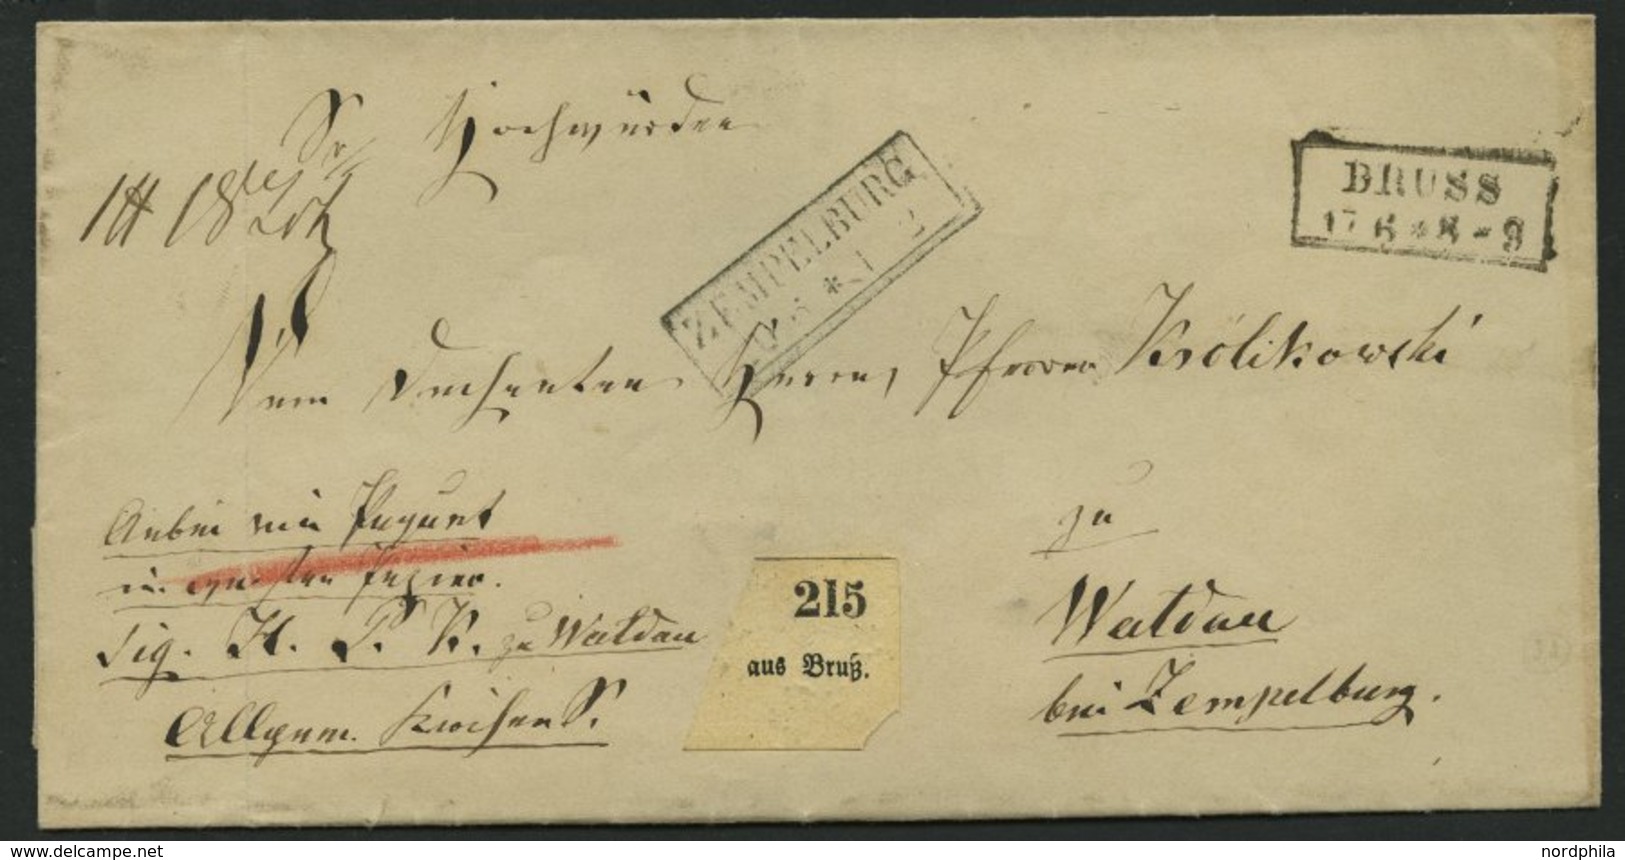 Sr Hochwürden
1 ℔ 18 Loth
ZEMPELBURG
* 1 2
BRUSS
17 6 * 8 - 9
Dem Dechanten Herrn Pfarrer Królikowski
Anbei ein Paquet
in Papier.
Sig. H. P. K. zu Waldau
Allgem. Kirchen S.
215
aus Bruß.
zu
Waldau
bei Zempelburg.
www.delcampe.net
nordphila